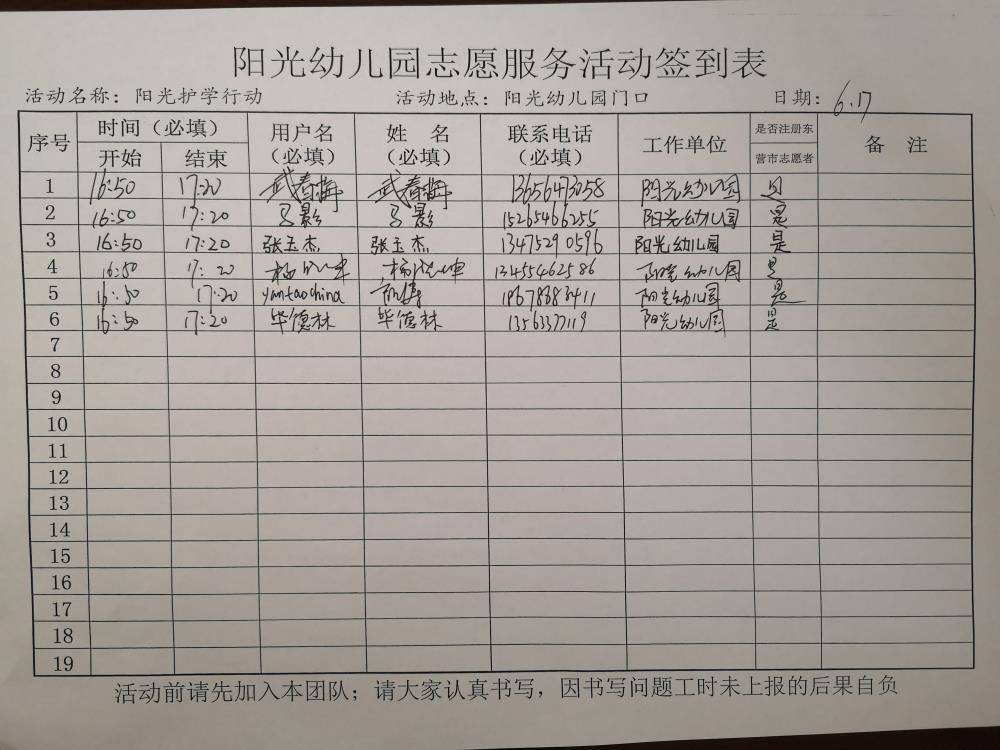 阳光幼儿园志愿服务活动签到表
活动名称：阳光护学行动 活动地点：阳光幼儿园门口 日期：6.17
序号 时间（必填） 用户名（必填） 姓名（必填） 联系电话（必填） 工作单位 是否注册东营市志愿者 备注
开始 结束
1 16:50 17:20 武春梅 武春梅 13656473058 阳光幼儿园 是
2 16:50 17:20 吕影 吕影 15265466255 阳光幼儿园 是
3 16:50 17:20 张玉杰 张玉杰 13475290596 阳光幼儿园 是
4 16:50 17:20 13455462586 阳光幼儿园 是
5 16:50 17:20 yantaochina 阳光幼儿园 是
6 16:50 17:20 毕德林 毕德林 13563377119 阳光幼儿园 是
7
8
9
10
11
12
13
14
15
16
17
18
19
活动前请先加入本团队；请大家认真书写，因书写问题工时未上报的后果自负